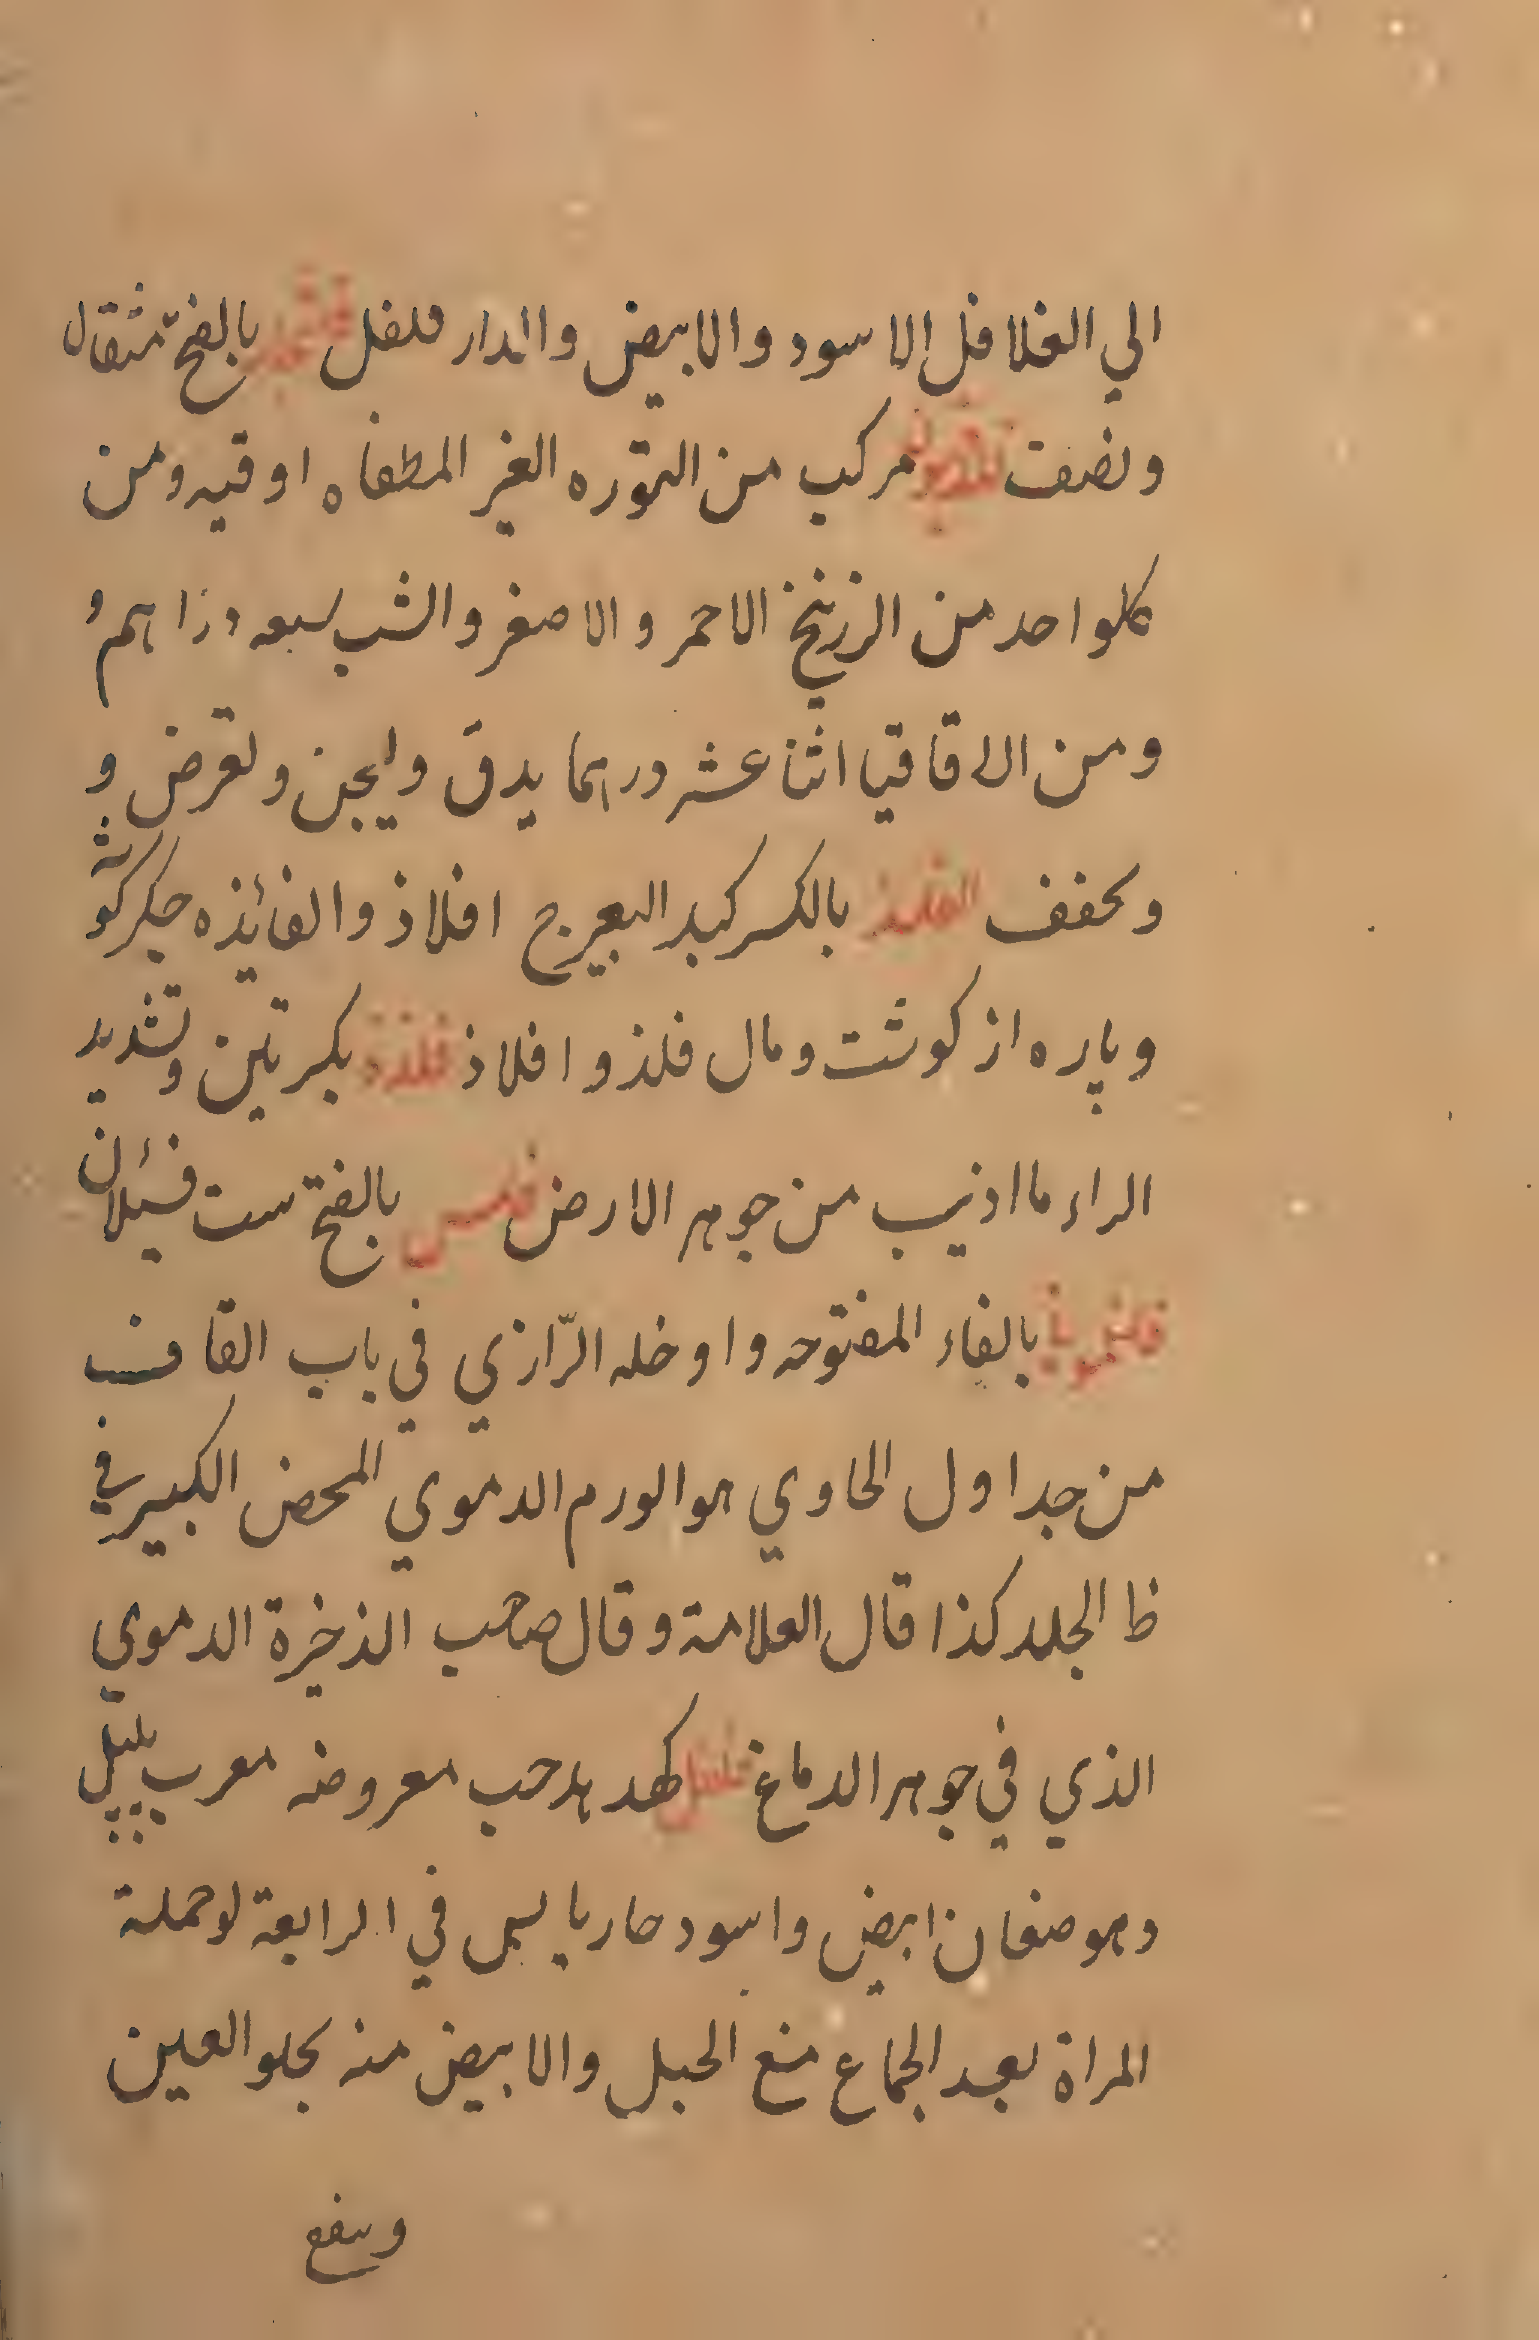 الي الفلافل الاسود والابيض والدار فلفل بالفتح مثقال
ونصف مركب من النوره الغير المطفاه اوقيه ومن
كلواحد من الزرنيخ الاحمر والاصفر والشب سبعه دراهم و
ومن الاقاقيا اثنا عشر درهما يدق ويعجن ويقرض و
ويجفف الفلذ بالكسر كبد البعير ج افلاذ والفائذه جكر كوشه
وپاره از كوشت ومال فلذ و افلاذ فلذذ بكسرتين وتشديد
الراء ما اذيب من جوهر الارض فلس بالفتح ست فسئلان
فلغموني بالفاء المفتوحه واوخله الرّازي في باب القاف
من جداول الحاوي هو الورم الدموي المحض الكبير في
ظا الجلد كذا قال العلامة وقال صاحب الذخيرة الدموي
الذي في جوهر الدماغ فلفل كهدهد حب معروفه معرب پلپل
وهو صنفان ابيض واسود حار يابس في الرابعة لو حملة
المراة بعد الجماع منع الحبل والابيض منه يجلو العين
وينفع